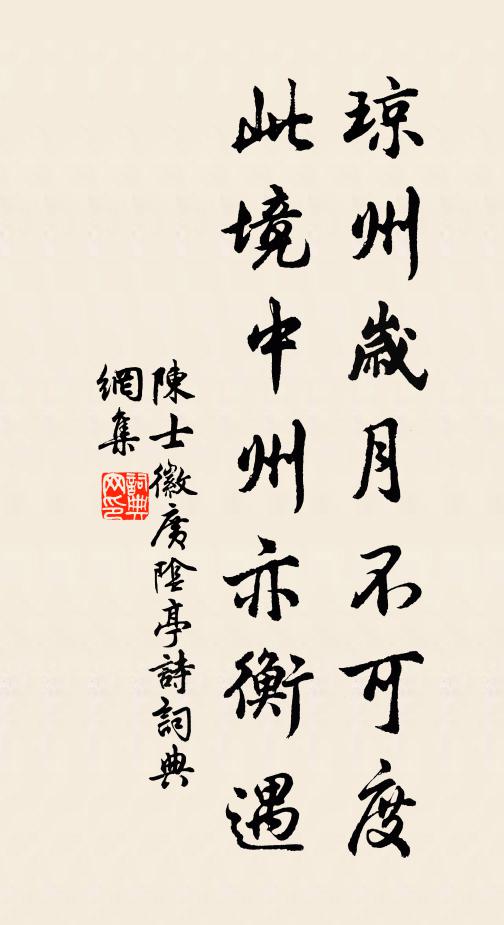 琼州歲月不可度
此境中州亦衡遇
陳士徽廣陰亭詩詞典
網集
詞典
网印